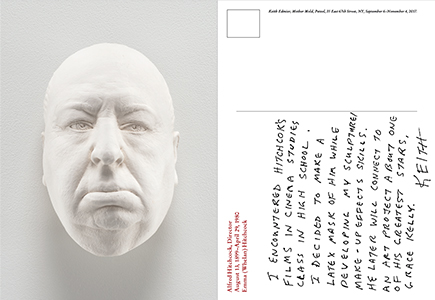 Keith Edmier, Mother Mold, Petzel, 35 East 67th Street, NY, September 6–November 4, 2017
Alfred Hitchcock, Director
August 13, 1899–April 29, 1980
Emma (Whelan) Hitchcock
I ENCOUNTERED HITCHCOK'S
FILMS IN CINEMA STUDIES
CLASS IN HIGH SCHOOL.
I DECIDED TO MAKE A
LATEX MASK OF HIM WHILE
DEVELOPING MY SCULPTURE/
MAKE-UP EFFECTS SKILLS.
HE LATER WILL CONNECT TO
AN ART PROJECT ABOUT ONE
OF HIS GREATEST STARS,
GRACE KELLY.
KEITH